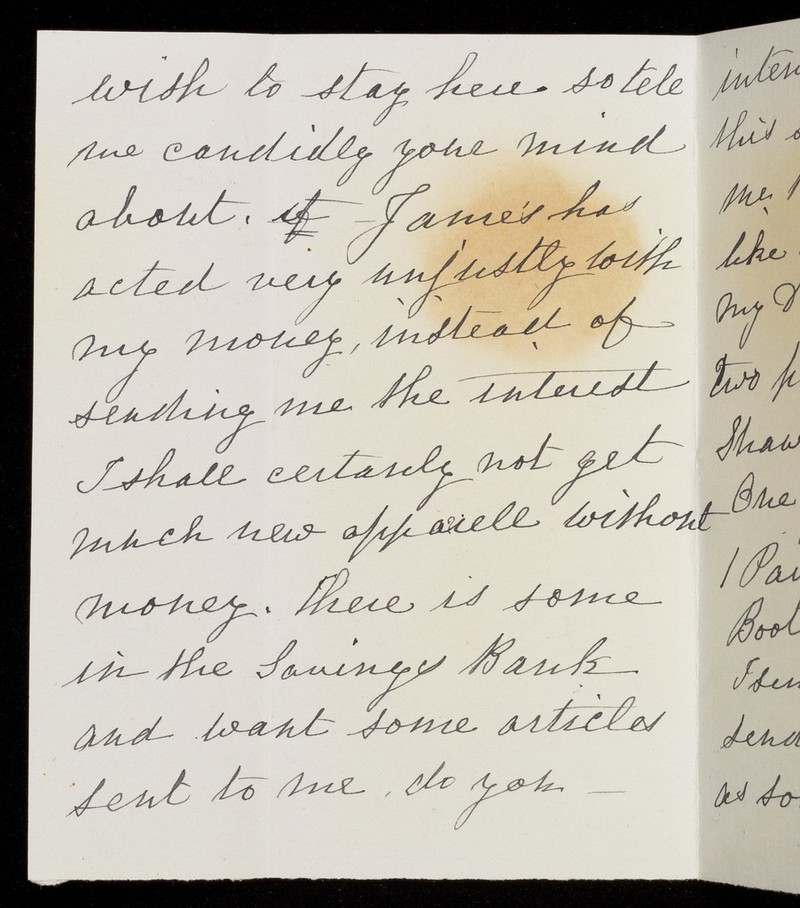 wish to stay here so tele
me candidly your mind
about. if James has
acted very unjustly with
my money, instead of
sending me the interest
I shall certanly not get
much new apparell without
money. there is some
in the Savings Bank
and want some articles
sent to me. do you —
inten
this
me
like
my D
two p
Shaw
One
1 Pai
Boot
I sen
send
as so